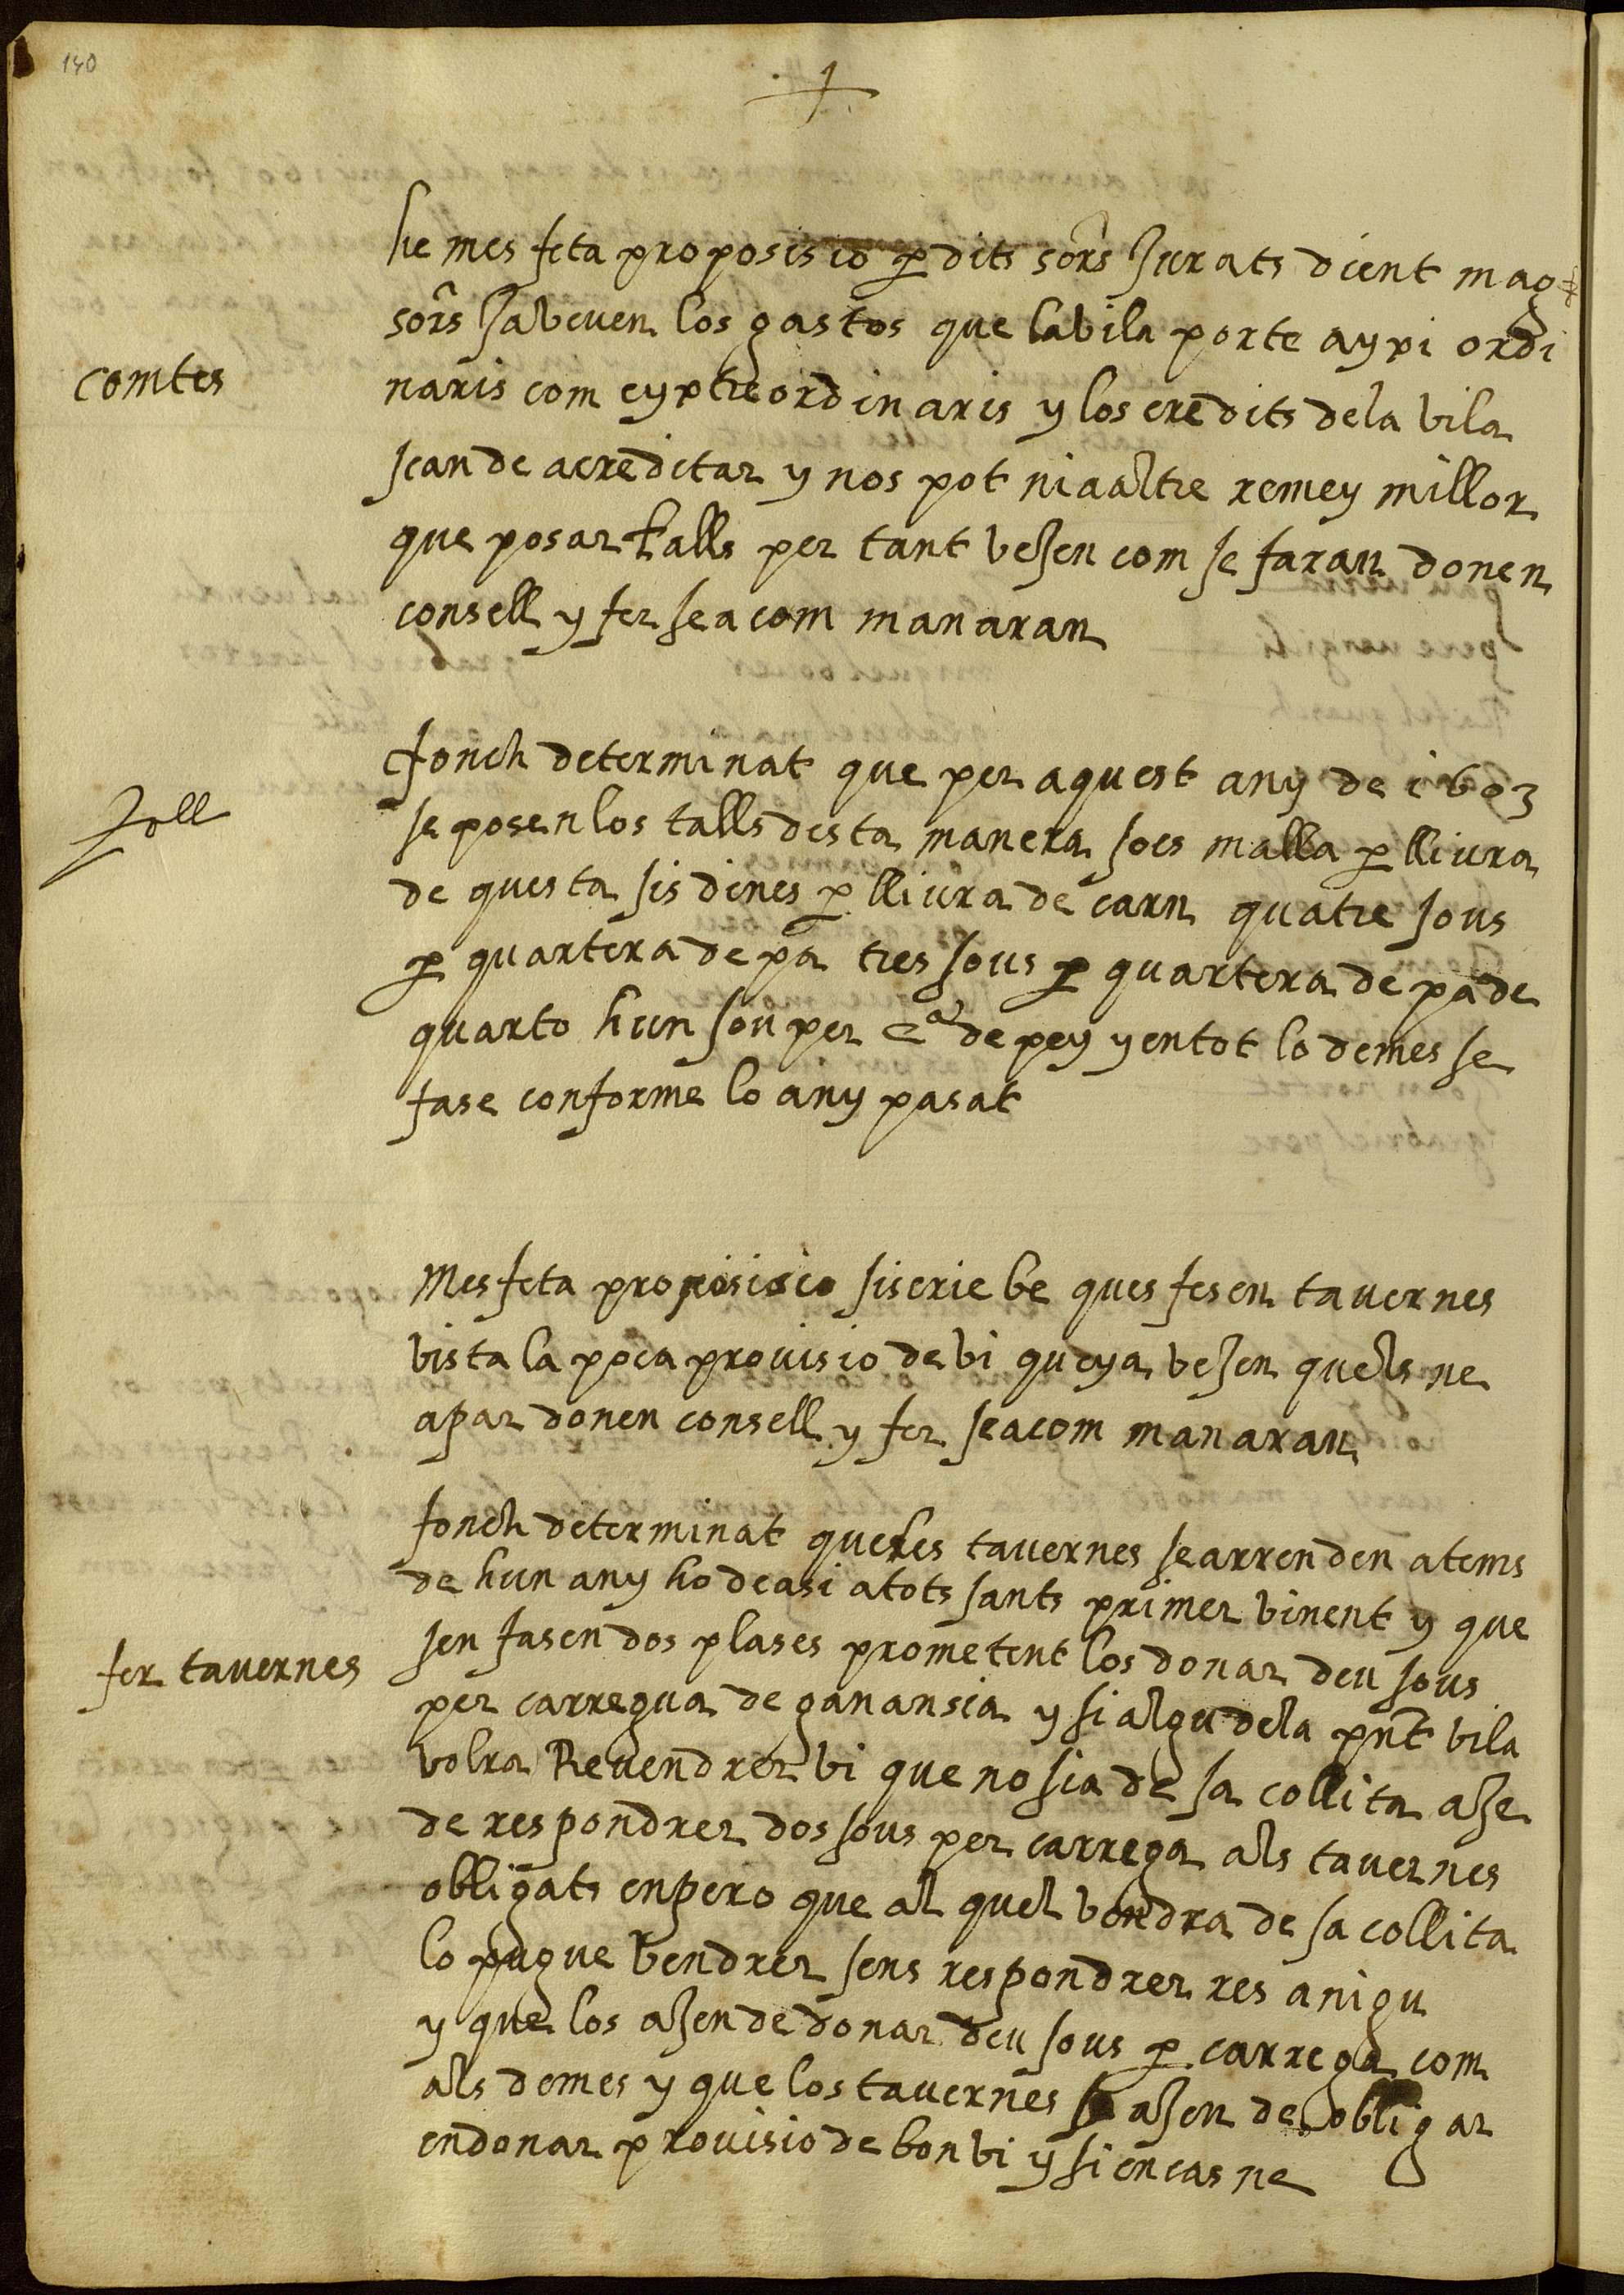 140
he mes feta proposisio p dits sors Jurats dient mag
sors Ja beuen los gastos que la vila porte ayxi ordi
comtes
naris com eyxtreordinaris y los credits de la vila
sean de acreditar y nos pot nia altre remey millor
que posar talls per tant vejen com se faran donen
consell y fer se a com manaran
fonch determinat que per aquest any de 1603
Tall
se posen los talls desta manera soes malla p lliura
de questa sis dines p lliura de carn quatre sous
p quartera de pa tres sous p quartera de pa de
quarto hun sou per @ de pey y en tot lo demes se
fase conforme lo any pasat
Mes feta proposisio si serie be ques fesen tavernes
vista la poca provisio de vi que ya vejen quels ne
apar donen consell y fer se a com manaran
fonch determinat que les tavernes se arrenden a tems
de hun any ho de asi a tots sants primer vinent y que
fer tavernes
sen fasen dos plases prometent los donar deu sous
per carregua de ganansia y si algu de la pnt vila
volra Revendrer vi que no sia de sa collita aje
de respondrer dos sous per carrega als tavernes
obligats enpero que al quel vendra de sa collita
lo pugue vendrer sens respondrer res a nigu
y que los ajen de donar deu sous p carrega com
als demes y que los tavernes se ajen de obligar
en donar provisio de bon vi y si en cas ne